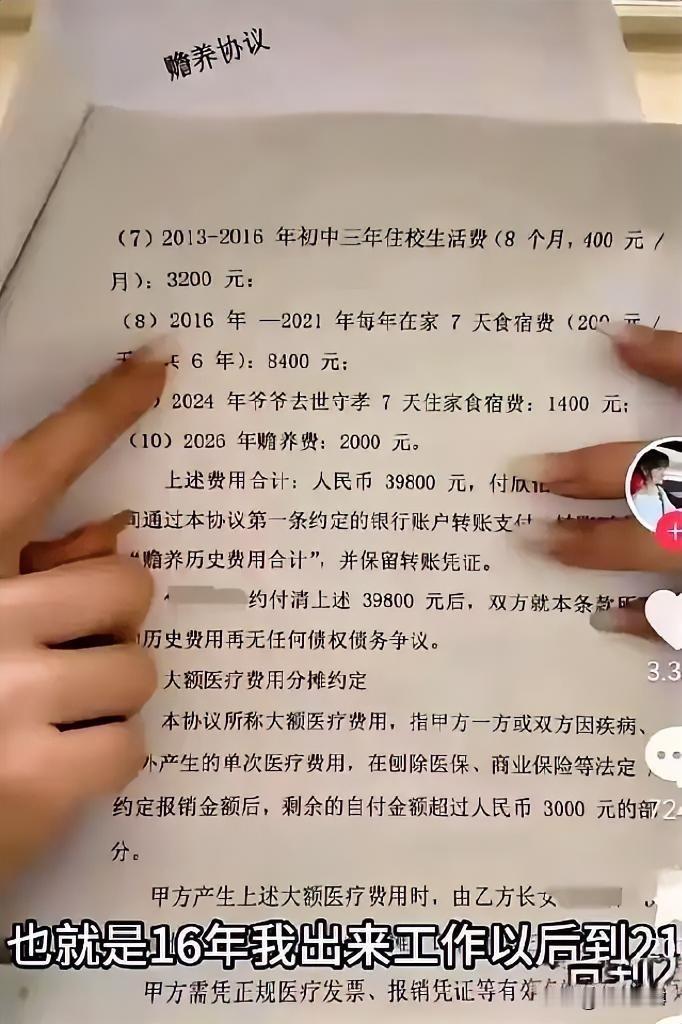 赡养协议
（7）2013-2016 年初中三年住校生活费（8 个月，400 元／
月）：3200 元；
（8）2016 年 —2021 年每年在家 7 天食宿费（200 元／
共 6 年）：8400 元；
2024 年爷爷去世守孝 7 天住家食宿费：1400 元；
（10）2026 年赡养费：2000 元。
上述费用合计：人民币 39800 元，付欣
间通过本协议第一条约定的银行账户转账支付
“赡养历史费用合计”，并保留转账凭证。
约付清上述 39800 元后，双方就本条款所
历史费用再无任何债权债务争议。
3.3
大额医疗费用分摊约定
本协议所称大额医疗费用，指甲方一方或双方因疾病、
外产生的单次医疗费用，在刨除医保、商业保险等法定
约定报销金额后，剩余的自付金额超过人民币 3000 元的部
724
分。
甲方产生上述大额医疗费用时，由乙方长女
也就是16年我出来工作以后到21
甲方需凭正规医疗发票、报销凭证等有效